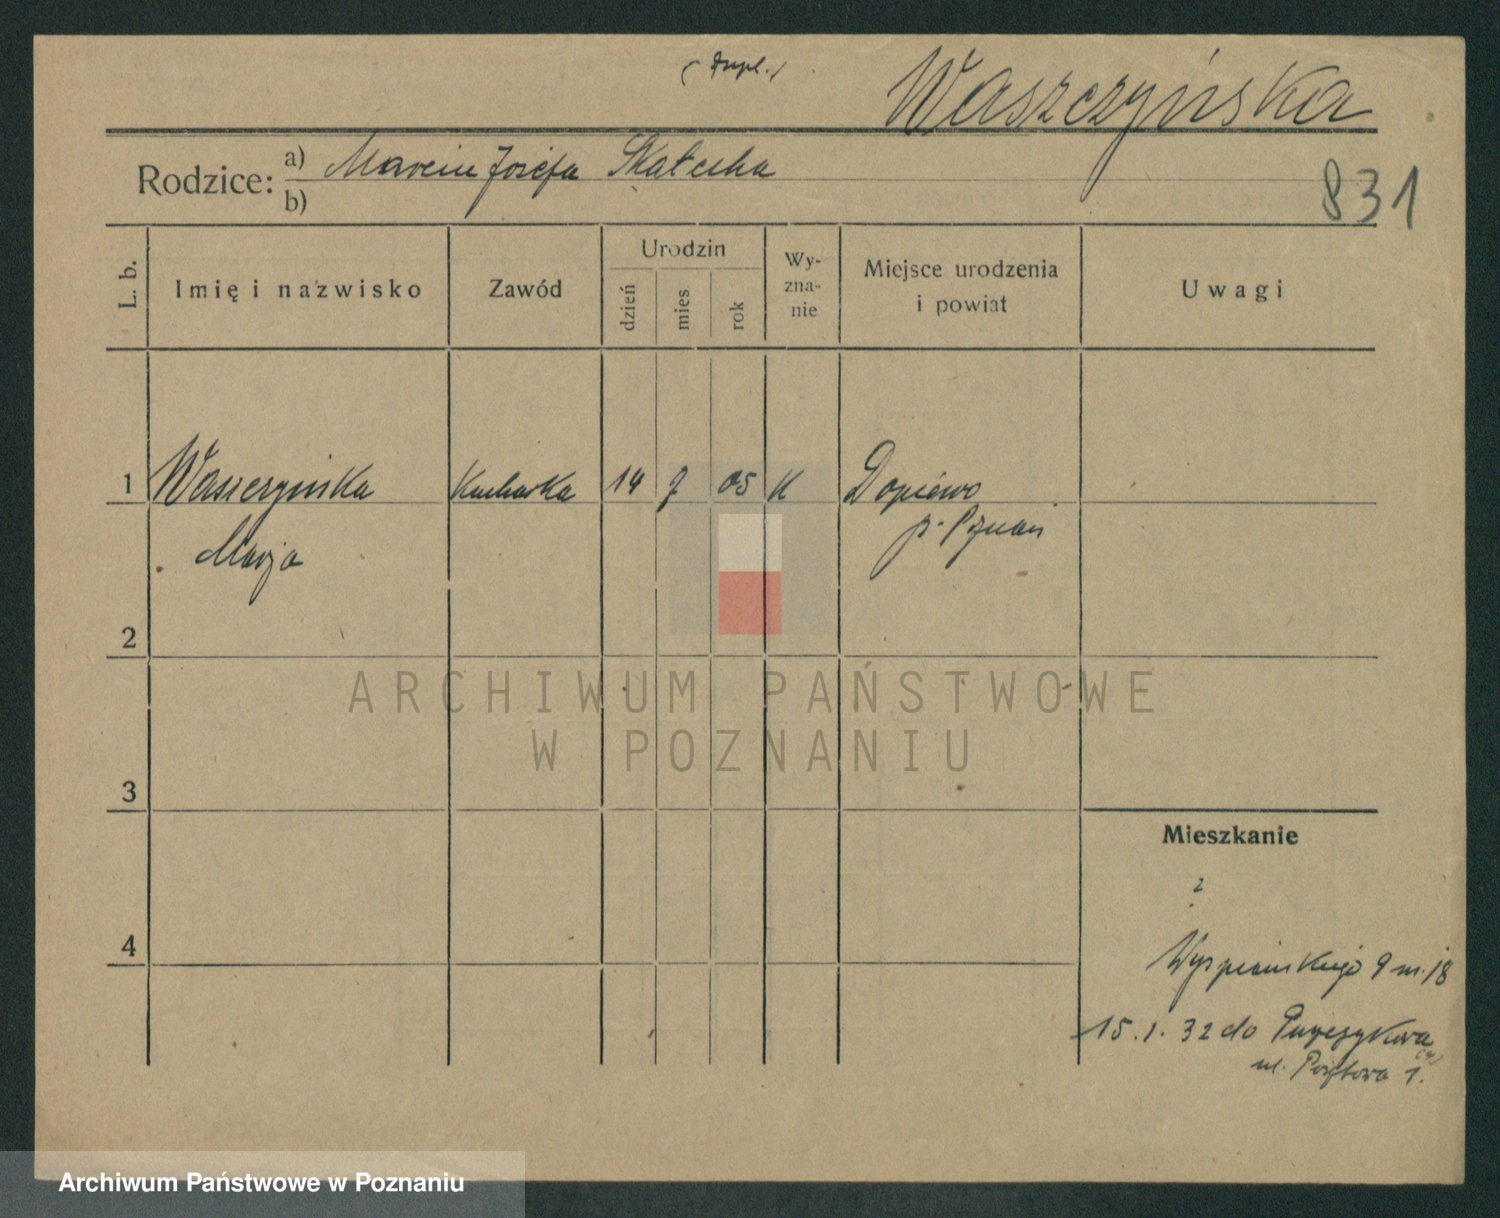 (Dupl.)
Waszczyńska
Rodzice: a) Marcin Józefa Skałecka
b)
831
L. b.
Imię i nazwisko
Zawód
Urodzin
dzień
mies
rok
Wy-
zna-
nie
Miejsce urodzenia
i powiat
Uwagi
1 Waszczyńska Kucharka 14 7 05 K Dopiewo
Marja
p. Poznań
2
3
4
Mieszkanie
?
Wyspiańskiego 9 m. 18
15.1.32 do
ul. 1.
ARCHIWUM PAŃSTWOWE
W POZNANIU
Archiwum Państwowe w Poznaniu